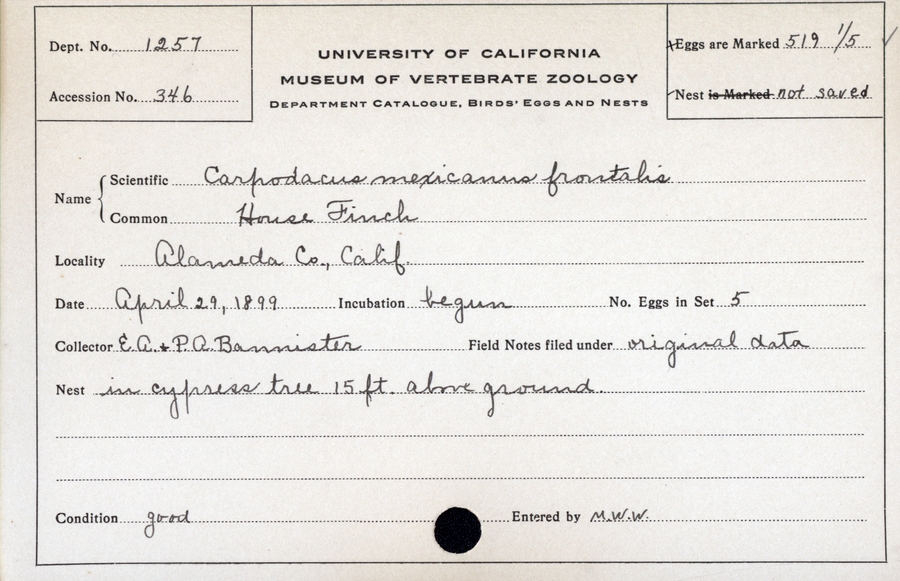 Dept. No. 1257
Accession No. 346
UNIVERSITY OF CALIFORNIA
MUSEUM OF VERTEBRATE ZOOLOGY
DEPARTMENT CATALOGUE, BIRDS' EGGS AND NESTS
Eggs are Marked 519 1/5
Nest is Marked not saved
Name
Scientific Carpodacus mexicanus frontalis
Common House Finch
Locality Alameda Co., Calif.
Date April 29, 1899 Incubation begun No. Eggs in Set 5
Collector E.A. & P.A. Bannister Field Notes filed under original data
Nest in cypress tree 15 ft. above ground.
Condition good Entered by M.W.W.